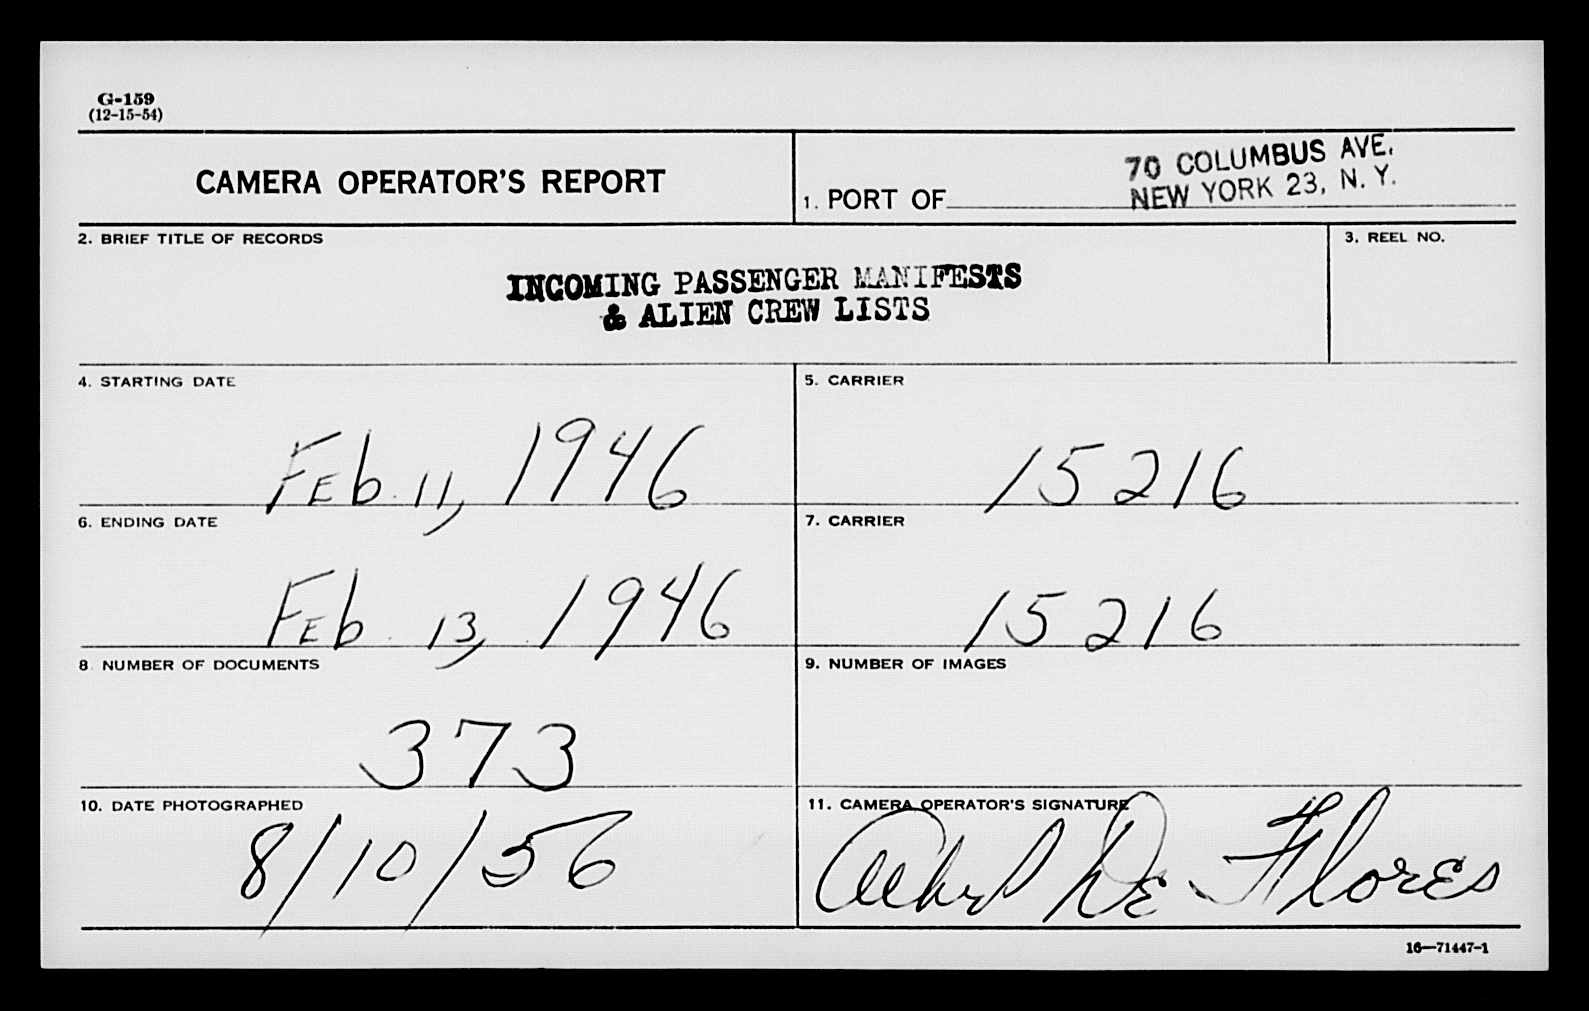 G-159
(12-15-54)
CAMERA OPERATOR'S REPORT
1. PORT OF
70 COLUMBUS AVE.
NEW YORK 23, N. Y.
2. BRIEF TITLE OF RECORDS
3. REEL NO.
INCOMING PASSENGER MANIFESTS
& ALIEN CREW LISTS
4. STARTING DATE
5. CARRIER
Feb. 11, 1946
15216
6. ENDING DATE
7. CARRIER
Feb 13, 1946
15216
8. NUMBER OF DOCUMENTS
9. NUMBER OF IMAGES
373
10. DATE PHOTOGRAPHED
11. CAMERA OPERATOR'S SIGNATURE
8/10/56
De Flores
16—71447-1